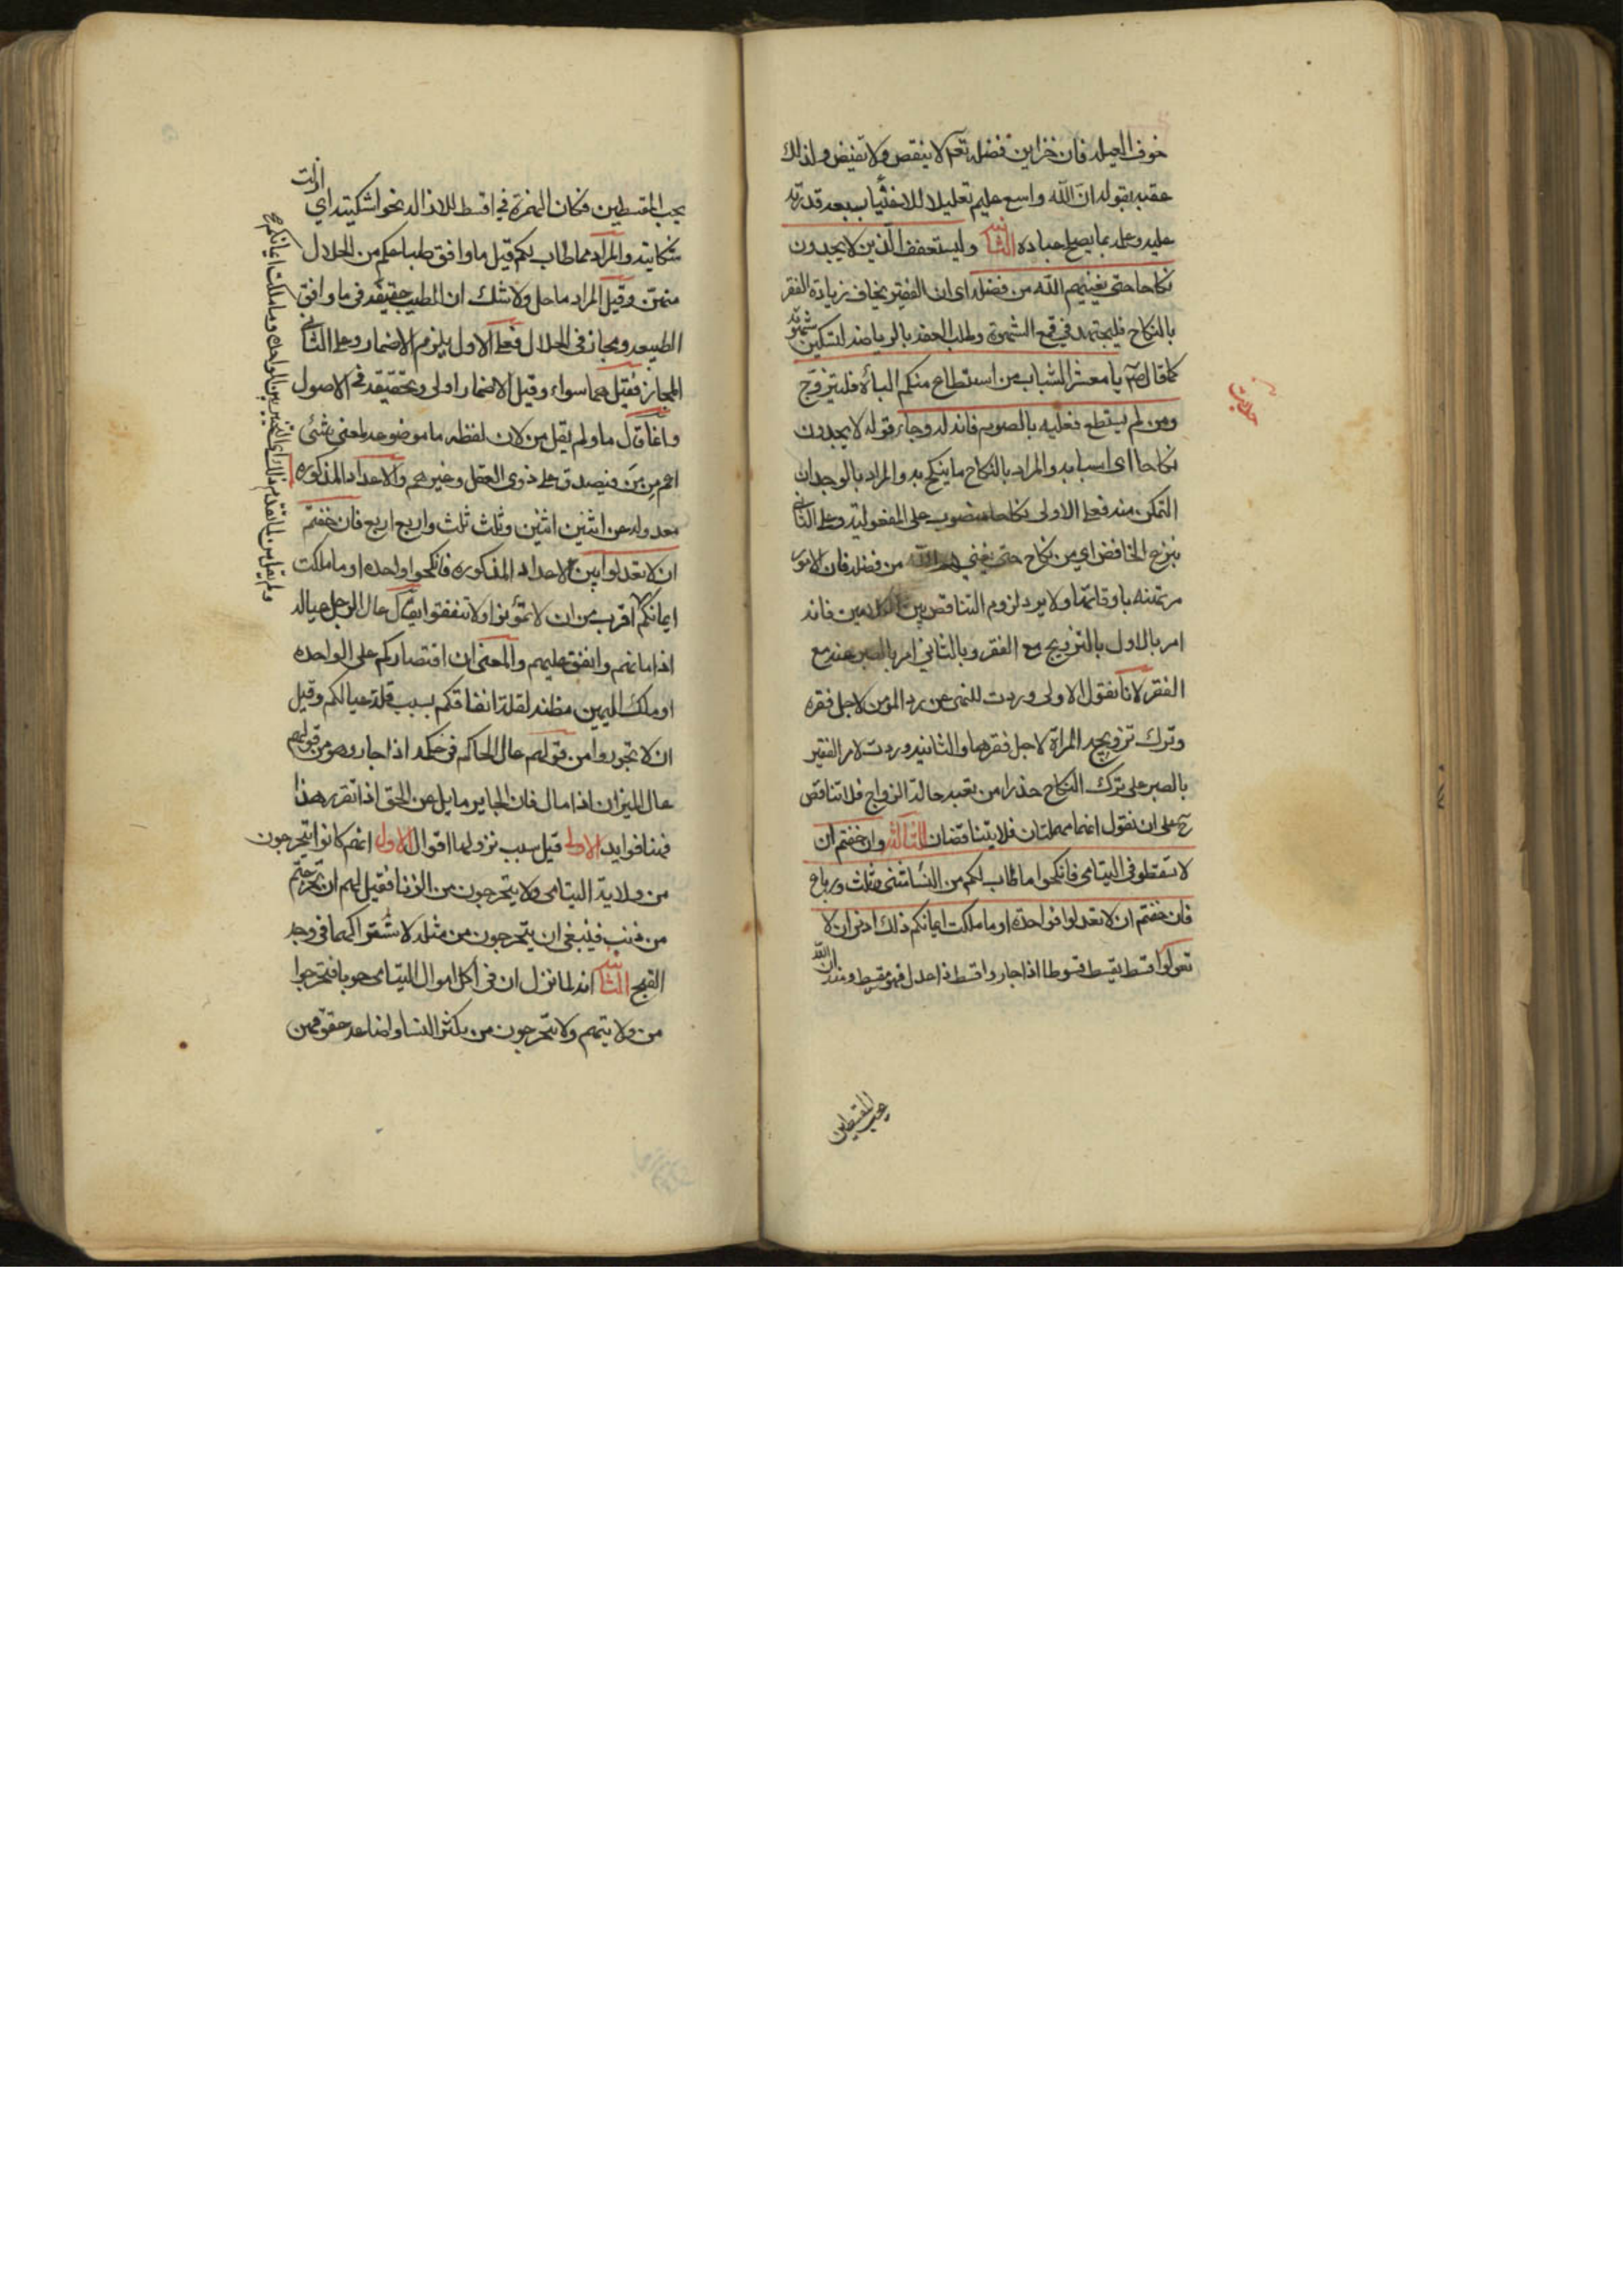 خوف العيله فان خزاين فضله تعم لا ينقص ولا تغيض ولذلك
عقبه بقوله ان الله واسع عليم تعليلا للاغنياء بسعه قدرته
عليه وعلمه بما يصلح عباده الثانيه وليستعفف الذين لا يجدون
نكاحا حتى يغنيهم الله من فضله اى ان الفقير يخاف زيادة الفقر
بالنكاح فليجتهد في قمع الشهوة وطلب العفه بالرياضه لتسكين شهوته
كما قال صم يا معشر الشباب من استطاع منكم الباة فليتزوج
حديث
ومن لم يستطع فعليه بالصوم فانه له وجاء وقوله لا يجدون
نكاحا اى اسبابه والمراد بالنكاح ما ينكح به والمراد بالوجدان
التمكن منه فعلى الاولى نكاحا منصوب على المفعوليه وعلى الثانى
بنزع الخافض اي من نكاح حتى يغنيهم الله من فضله فان الامور
مرتهنه باوقاتها ولا يرد لزوم التناقض بين الكلامين فانه
امر بالاول بالتزويج مع الفقر وبالثاني امر بالصبر عنه مع
الفقر لانا نقول الاولى وردت للنهى عن رد المؤمن لاجل فقره
وترك تزويجه المراة لاجل فقرهما والثانيه وردت لامر الفقير
بالصبر على ترك النكاح حذرا من تعبه حالة الزواج فلا تناقض
على ان نقول انهما مهملتان فلا يتناقضان الثالثه وان خفتم ان
لا تقسطو في اليتامى فانكحوا ما طاب لكم من النساء مثنى وثلث ورباع
فان خفتم ان لا تعدلوا فواحدة او ما ملكت ايمانكم ذلك ادنى ان لا
تعولوا قسط يقسط قسوطا اذا جار واقسط اذا عدل فهو مقسط ومنه ان الله
يحب المقسطين
يحب المقسطين فكان الهمزة في اقسط للازاله نحو اشكيته اي ازلت
شكايته والمراد مما طاب لكم قيل ما وافق طباعكم من الحلال
منهن وقيل المراد ما حل ولا شك ان الطيب حقيقه في ما وافق
الطبيعه ومجاز في الحلال فعلى الاول يلزم الاضمار وعلى الثانى
المجاز فقيل هما سواء وقيل الاضمار اولى وتحقيقه في الاصول
وانما قال ما ولم يقل من لان لفظه ما موضوعه لمعنى شئ
اعم من من فيصدق على ذوى العقل وغيرهم والاعداد المذكوره
معدوله عن اثنين اثنين وثلث ثلث واربع اربع فان خفتم
ان لا تعدلوا بين الاعداد المذكوره فانكحوا واحده او ما ملكت
ايمانكم اقرب من ان لا تمؤنوا ولا تنفقوا يقال عال الرجل عياله
اذا مانهم وانفق عليهم والمعنى ان اقتصاركم على الواحده
او ملك اليمين مظنه لقلة انفاقكم بسبب قلة عيالكم وقيل
ان لا تجوروا من قولهم عال الحاكم في حكمه اذا جار وهو من قولهم
عال الميزان اذا مال فان الجاير مايل عن الحق اذا تقرر هذا
فهنا فوايد الاولى قيل سبب نزولها اقوال الاول انهم كانوا يتحرجون
من ولاية اليتامى ولا يتحرجون من الزنا فقيل لهم ان تحرجتم
من ذنب فينبغى ان يتحرجون من مثله لاشتراكهما في وجه
القبح الثانيه انه لما نزل ان فى اكل اموال اليتامى حوبا فتحرجوا
من ولايتهم ولا يتحرجون من يكثر النسا واضاعه حقوقهن